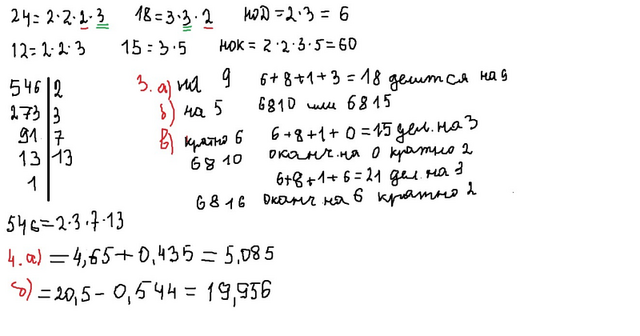 24=2·2·2·3 18=3·3·2 НОД=2·3=6
12=2·2·3 15=3·5 НОК=2·2·3·5=60
546 2
273 3
91 7
13 13
1
546=2·3·7·13
3. а) на 9 6+8+1+3=18 делится на 9
б) на 5 6810 или 6815
в) кратно 6 6+8+1+0=15 дел. на 3
6810 оканч. на 0 кратно 2
6+8+1+6=21 дел. на 3
6816 оканч на 6 кратно 2
4. а) =4,65+0,435=5,085
б) =20,5-0,544=19,956